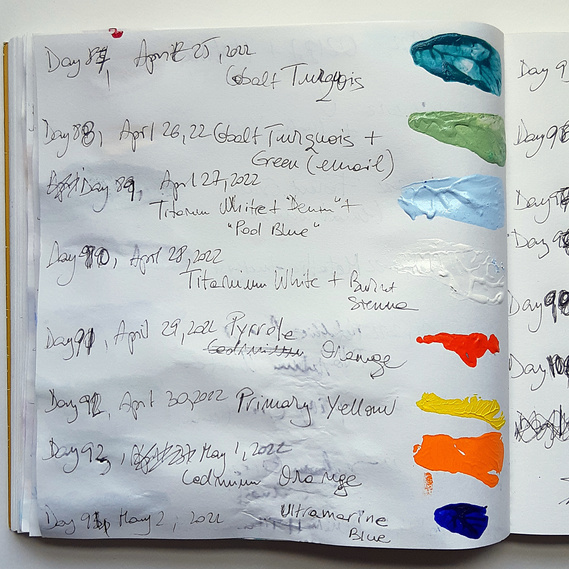 Day 87, April 25, 2022
Cobalt Turquois
Day 88, April 26, 22 Cobalt Turquois +
Green (email)
Day 89, April 27, 2022
Titanium White + "Denim" +
"Pool Blue"
Day 90, April 28, 2022
Titanium White + Burnt
Sienna
Day 91, April 29, 2022 Pyrrole
Orange
Day 92, April 30, 2022 Primary Yellow
Day 93, May 1, 2022
Cadmium Orange
Day 94, May 2, 2022 Ultramarine
Blue
Day
Day
Day
Day
Day